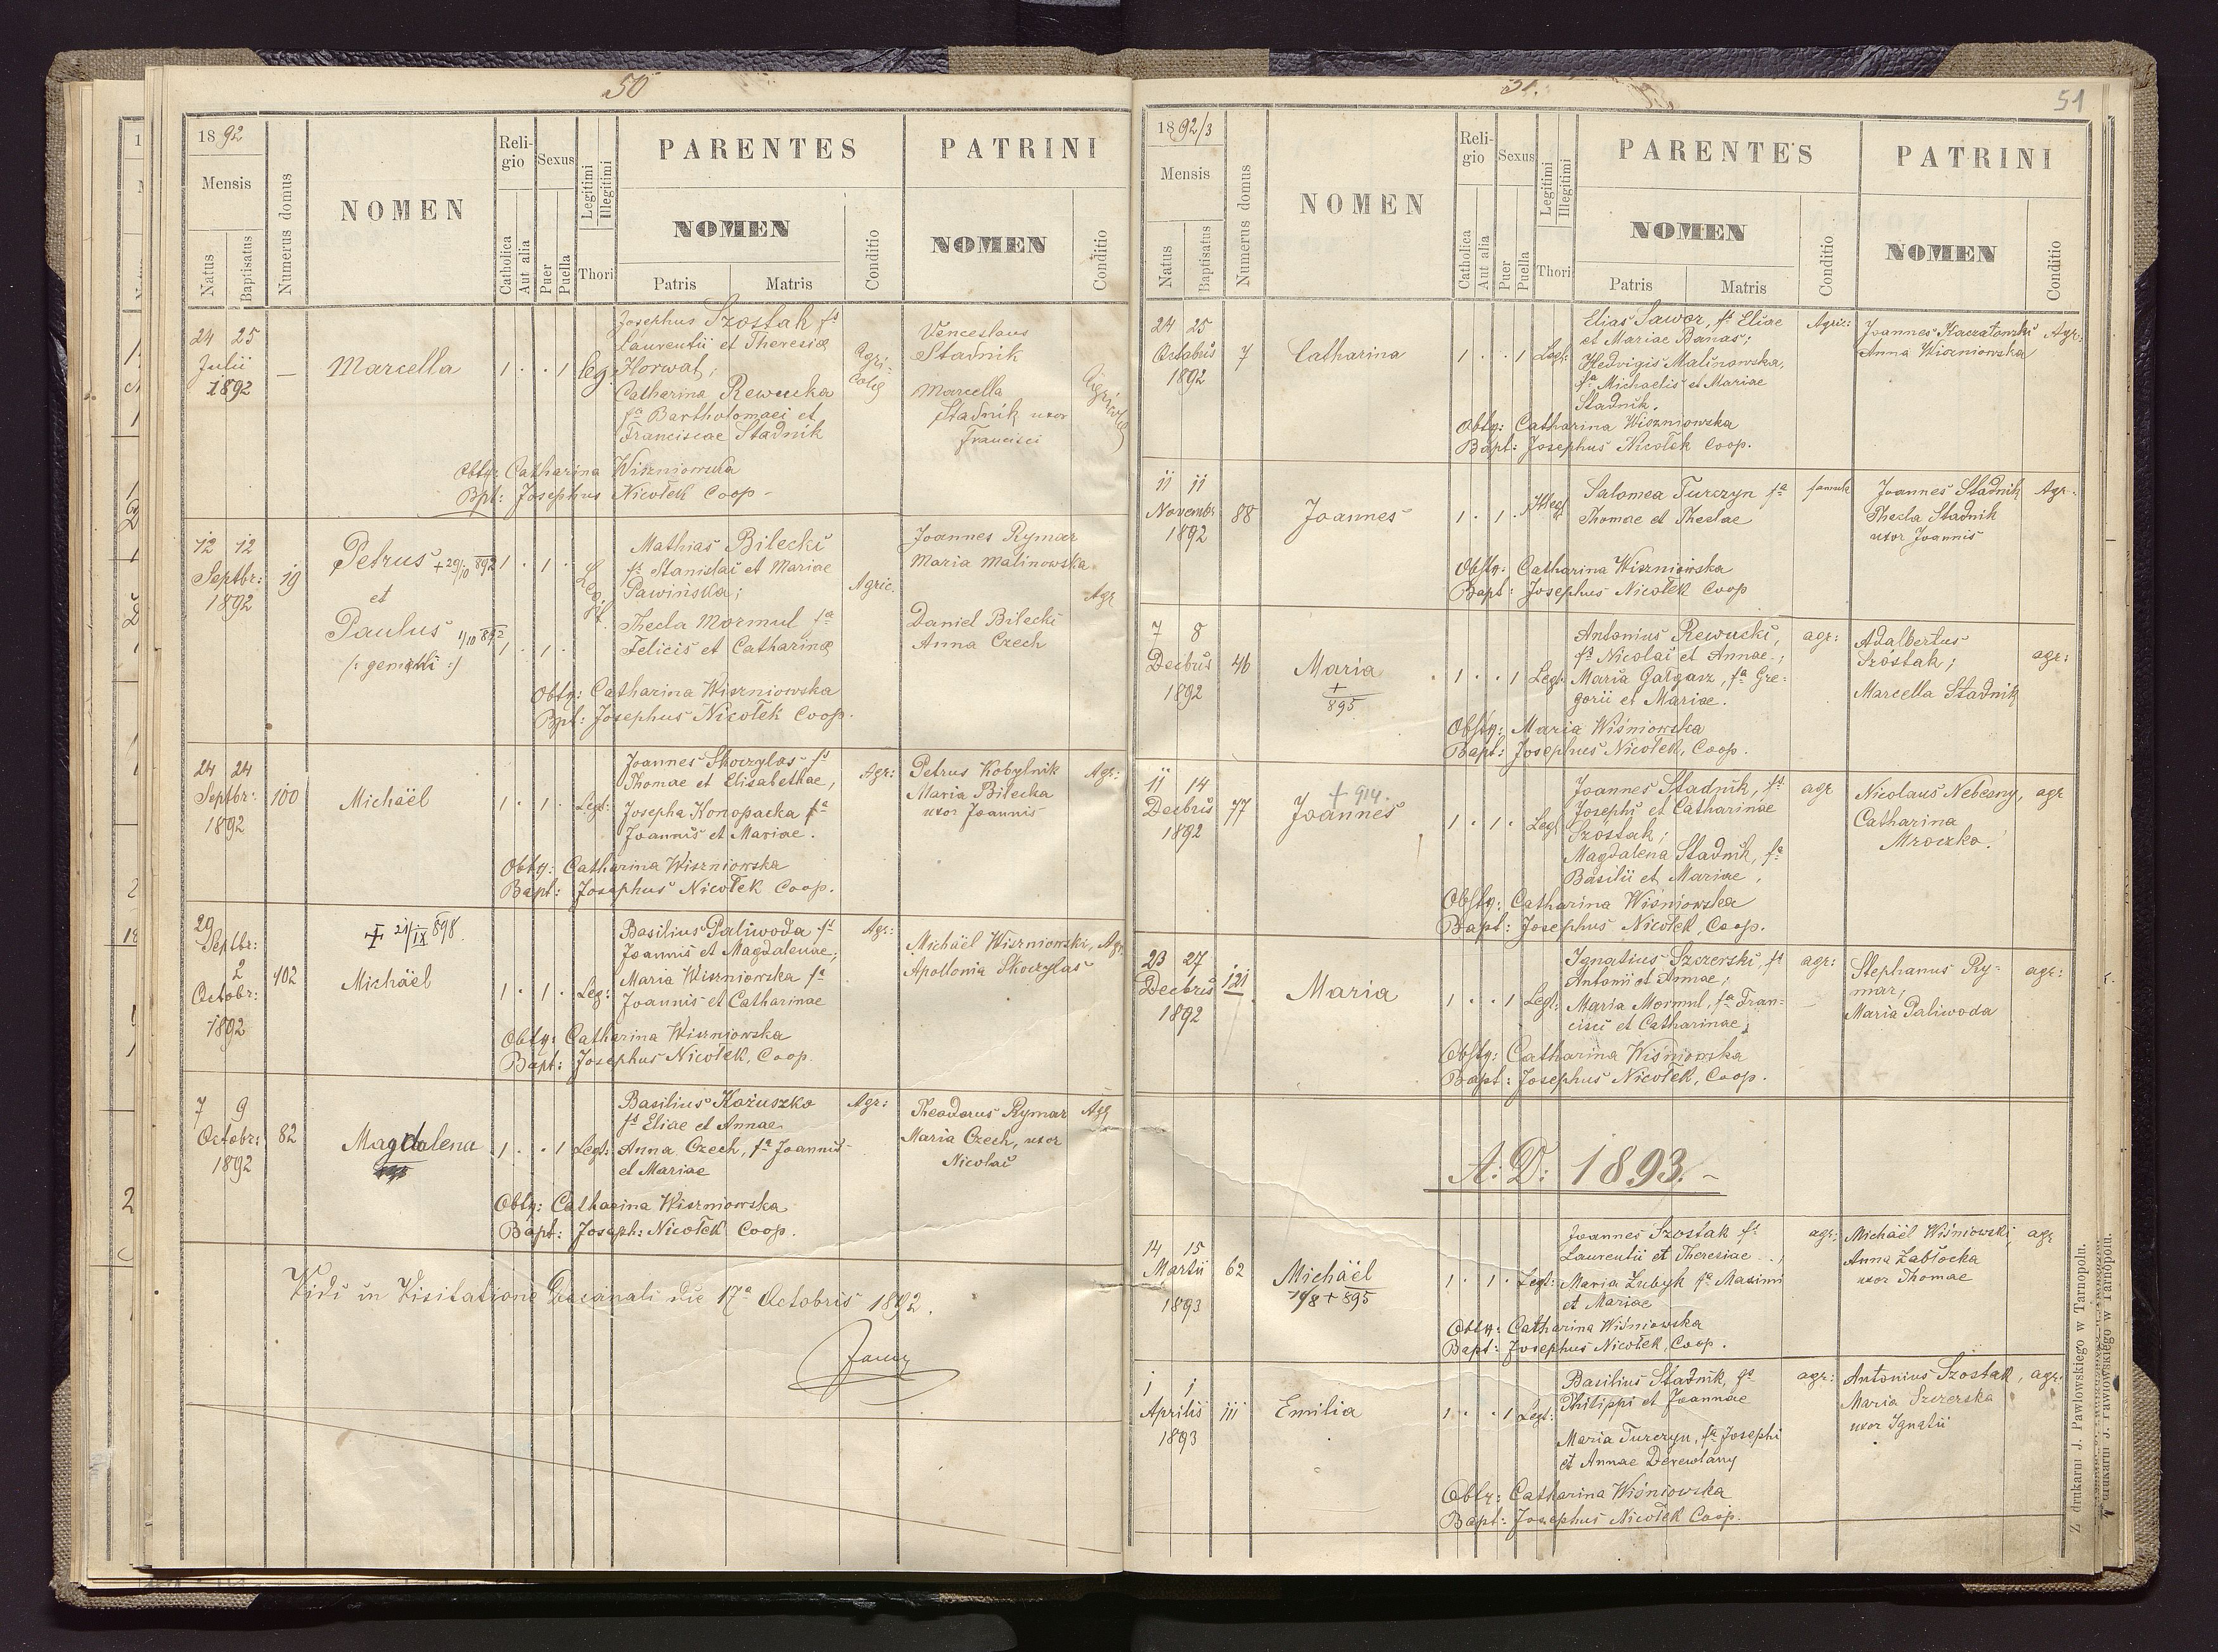 50
1892
Mensis
Natus
Baptisatus
Numerus domus
NOMEN
Religio
Catholica
Aut alia
Sexus
Puer
Puella
Legitimi
Illegitimi
Thori
PARENTES
NOMEN
Patris
Matris
Conditio
PATRINI
NOMEN
Conditio
24 25
Julii
1892
—
Marcella
1 . . 1
leg.
Josephus Szostak fs
Laurentii et Theresiæ
Horwat;
Catharina Rewucka
fa Bartholomaei et
Franciscae Stadnik
Agri-
colæ
Venceslaus
Stadnik
Marcella
Stadnik uxor
Francisci
Agricolæ
Obtq: Catharina Wiszniowska
Bpt: Josephus Nicołek Coop -
12 12
Septbr:
1892
19
Petrus + 29/10 892
et
Paulus 1/10 892
/: gemelli :/
1 . 1 .
1 . 1 .
Legit.
Mathias Bilecki
fs Stanislai et Mariae
Pawińska;
Thecla Mormul fa
Felicis et Catharinæ
Agric.
Joannes Rymar
Maria Malinowska
Daniel Bilecki
Anna Czech
Agr
Obtq: Catharina Wiszniowska
Bpt: Josephus Nicołek Coop.
24 24
Septbr:
1892
100
Michäel
1 . 1 .
Legt:
Joannes Skoczylas fs
Thomae et Elisabethae,
Josepha Konopacka fa
Joannis et Mariae.
Agr:
Petrus Kobylnik
Maria Bilecka
uxor Joannis
Agr:
Obtq: Catharina Wiszniowska
Bapt: Josephus Nicołek Coop.
29
Septbr:
2
Octobr:
1892
102
+ 21/IX 898.
Michäel
1 . 1 .
Leg:
Basilius Paliwoda fs
Joannis et Magdalenae;
Maria Wiszniowska fa
Joannis et Catharinae
Agr:
Michäel Wiszniowski,
Apollonia Skoczylas
Agr.
Obtq: Catharina Wiszniowska
Bapt: Josephus Nicołek, Coop.
7 9
Octobr:
1892
82
Magdalena
1 . . 1
Legt:
Basilius Kożuszko
fs Eliae et Annae
Anna Czech, fa Joannis
et Mariae
Agr:
Theodorus Rymar
Maria Czech, uxor
Nicolai
Agr
Obtq: Catharina Wiszniowska
Bapt: Joseph: Nicołek Coop.
Vidi in Visitatione Decanali die 17a Octobris 1892.
51.
51
1892/3
Mensis
Natus
Baptisatus
Numerus domus
NOMEN
Religio
Catholica
Aut alia
Sexus
Puer
Puella
Legitimi
Illegitimi
Thori
PARENTES
NOMEN
Patris
Matris
Conditio
PATRINI
NOMEN
Conditio
24 25
Octobris
1892
7
Catharina
1 . . 1
Legt:
Elias Sawor, fs Eliae
et Mariae Banas;
Hedvigis Malinowska,
fa Michaelis et Mariae
Stadnik.
Agric:
Joannes Kaczałowski
Anna Wiszniowska
Agr:
Obtq: Catharina Wiszniowska
Bapt: Josephus Nicołek Coop.
11 11
Novembr
1892
88
Joannes
1 . 1 .
Illegt
Salomea Turczyn fa
Thomae et Theclae
famula
Joannes Stadnik
Thecla Stadnik
uxor Joannis
Agr.
Obstq: Catharina Wiszniowska
Bapt: Josephus Nicołek Coop
7 8
Decbris
1892
46
Maria
+
895
1 . . 1
Legt.
Antonius Rewucki,
fs Nicolai et Annae.;
Maria Gałgasz, fa Gre-
gorii et Mariae.
agr:
Adalbertus
Szostak;
Marcella Stadnik
agr:
Obstq: Maria Wiśniowska
Bapt: Josephus Nicołek, Coop.
11 14
Decbris
1892
77
+ 914.
Joannes
1 . 1 .
Legt
Joannes Stadnik, fs
Josephi et Catharinae
Szostak;
Magdalena Stadnik, fa
Basilii et Mariae,
agr
Nicolaus Nebesny,
Catharina
Mroczko.
agr
Obstq: Catharina Wiśniowska
Bapt: Josephus Nicołek, Coop.
23 27
Decbris
1892
121
Maria
1 . . 1
Legt:
Ignatius Szczerski, fs
Antonii et Annae;
Maria Mormul, fa Fran-
cisci et Catharinae;
agr:
Stephanus Ry-
mar;
Maria Paliwoda
agr:
Obstq: Catharina Wiśniowska
Bapt: Josephus Nicołek, Coop.
A: D: 1893. -
14 15
Martii
1893
62
Michäël
19/8 + 895
1 . 1 .
Legt:
Joannes Szostak fs
Laurentii et Theresiae
Maria Łubyk fa Maximi
et Mariae
agr:
Michäël Wiśniowski
Anna Zabłocka
uxor Thomae
agr
Obtq: Catharina Wiśniowska
Bapt: Josephus Nicołek, Coop.
1 1
Aprilis
1893
111
Emilia
1 . . 1
Legt:
Basilius Stadnik, fs
Philippi et Joannae
Maria Turczyn, fa Josephi
et Annae Derewlany
agr:
Antonius Szostak,
Maria Szczerska
uxor Ignatii
agr:
Obtq: Catharina Wiśniowska
Bapt: Josephus Nicołek Coop.
Z drukarni J. Pawłowskiego w Tarnopolu.